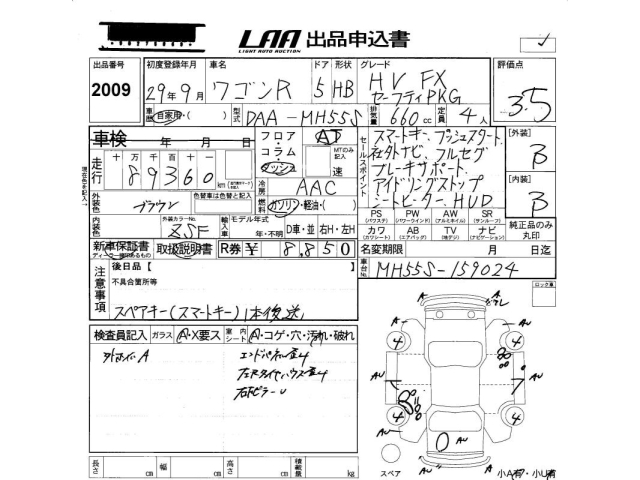 LAA 出品申込書
LIGHT AUTO AUCTION
出品番号 初度登録年月 車名 ドア 形状 グレード 評価点
2009 29年9月 ワゴンR 5 HB HV FX 3.5
セーフティPKG
車歴 自家用・( ) 型式 DAA-MH55S 排気量 660cc 定員 4人
車検 年 月 日 フロア・コラム・ダッシュ AT セールスポイント スマートキー、プッシュスタート [外装]
MTのみ記入 速 社外ナビ、フルセグ B
走行 十万千百十 89360 ブレーキサポート
現在色を記入→ 冷房 AAC アイドリングストップ [内装]
外装色 ブラウン 色替車は色替と記入 燃料 ガソリン・軽油・( ) シートヒーター、HUD B
外装カラーNo. ZSF 輸入車 モデル年式 年・不明 D車・並 右H・左H
PS AB PW AW SR
(パワステ) (パワーウインド) (アルミホイル) (サンルーフ) 純正品のみ丸印
カワ AB TV ナビ
(カワシート) (エアバッグ) (地デジ) (ナビゲーション)
新車保証書 取扱説明書 R券 ¥ 8,850 名変期限 月 日迄
ディーラー印のあるもの 車台No. MH55S-159024
注意事項 後日品 [ ロック車
不具合箇所等
スペアキー(スマートキー)1本後送
検査員記入 ガラス A・X要ス 室内シート A・コゲ・穴・汚れ・破れ
外ホイルA エンドパネル歪4
左Rタイヤハウス歪4
右BピラーU
長さ cm 幅 cm 高さ cm 積載量 kg
A
A
AU
AU
AU
AU
AU
4
4
4
4
スペア 小A有・小U有